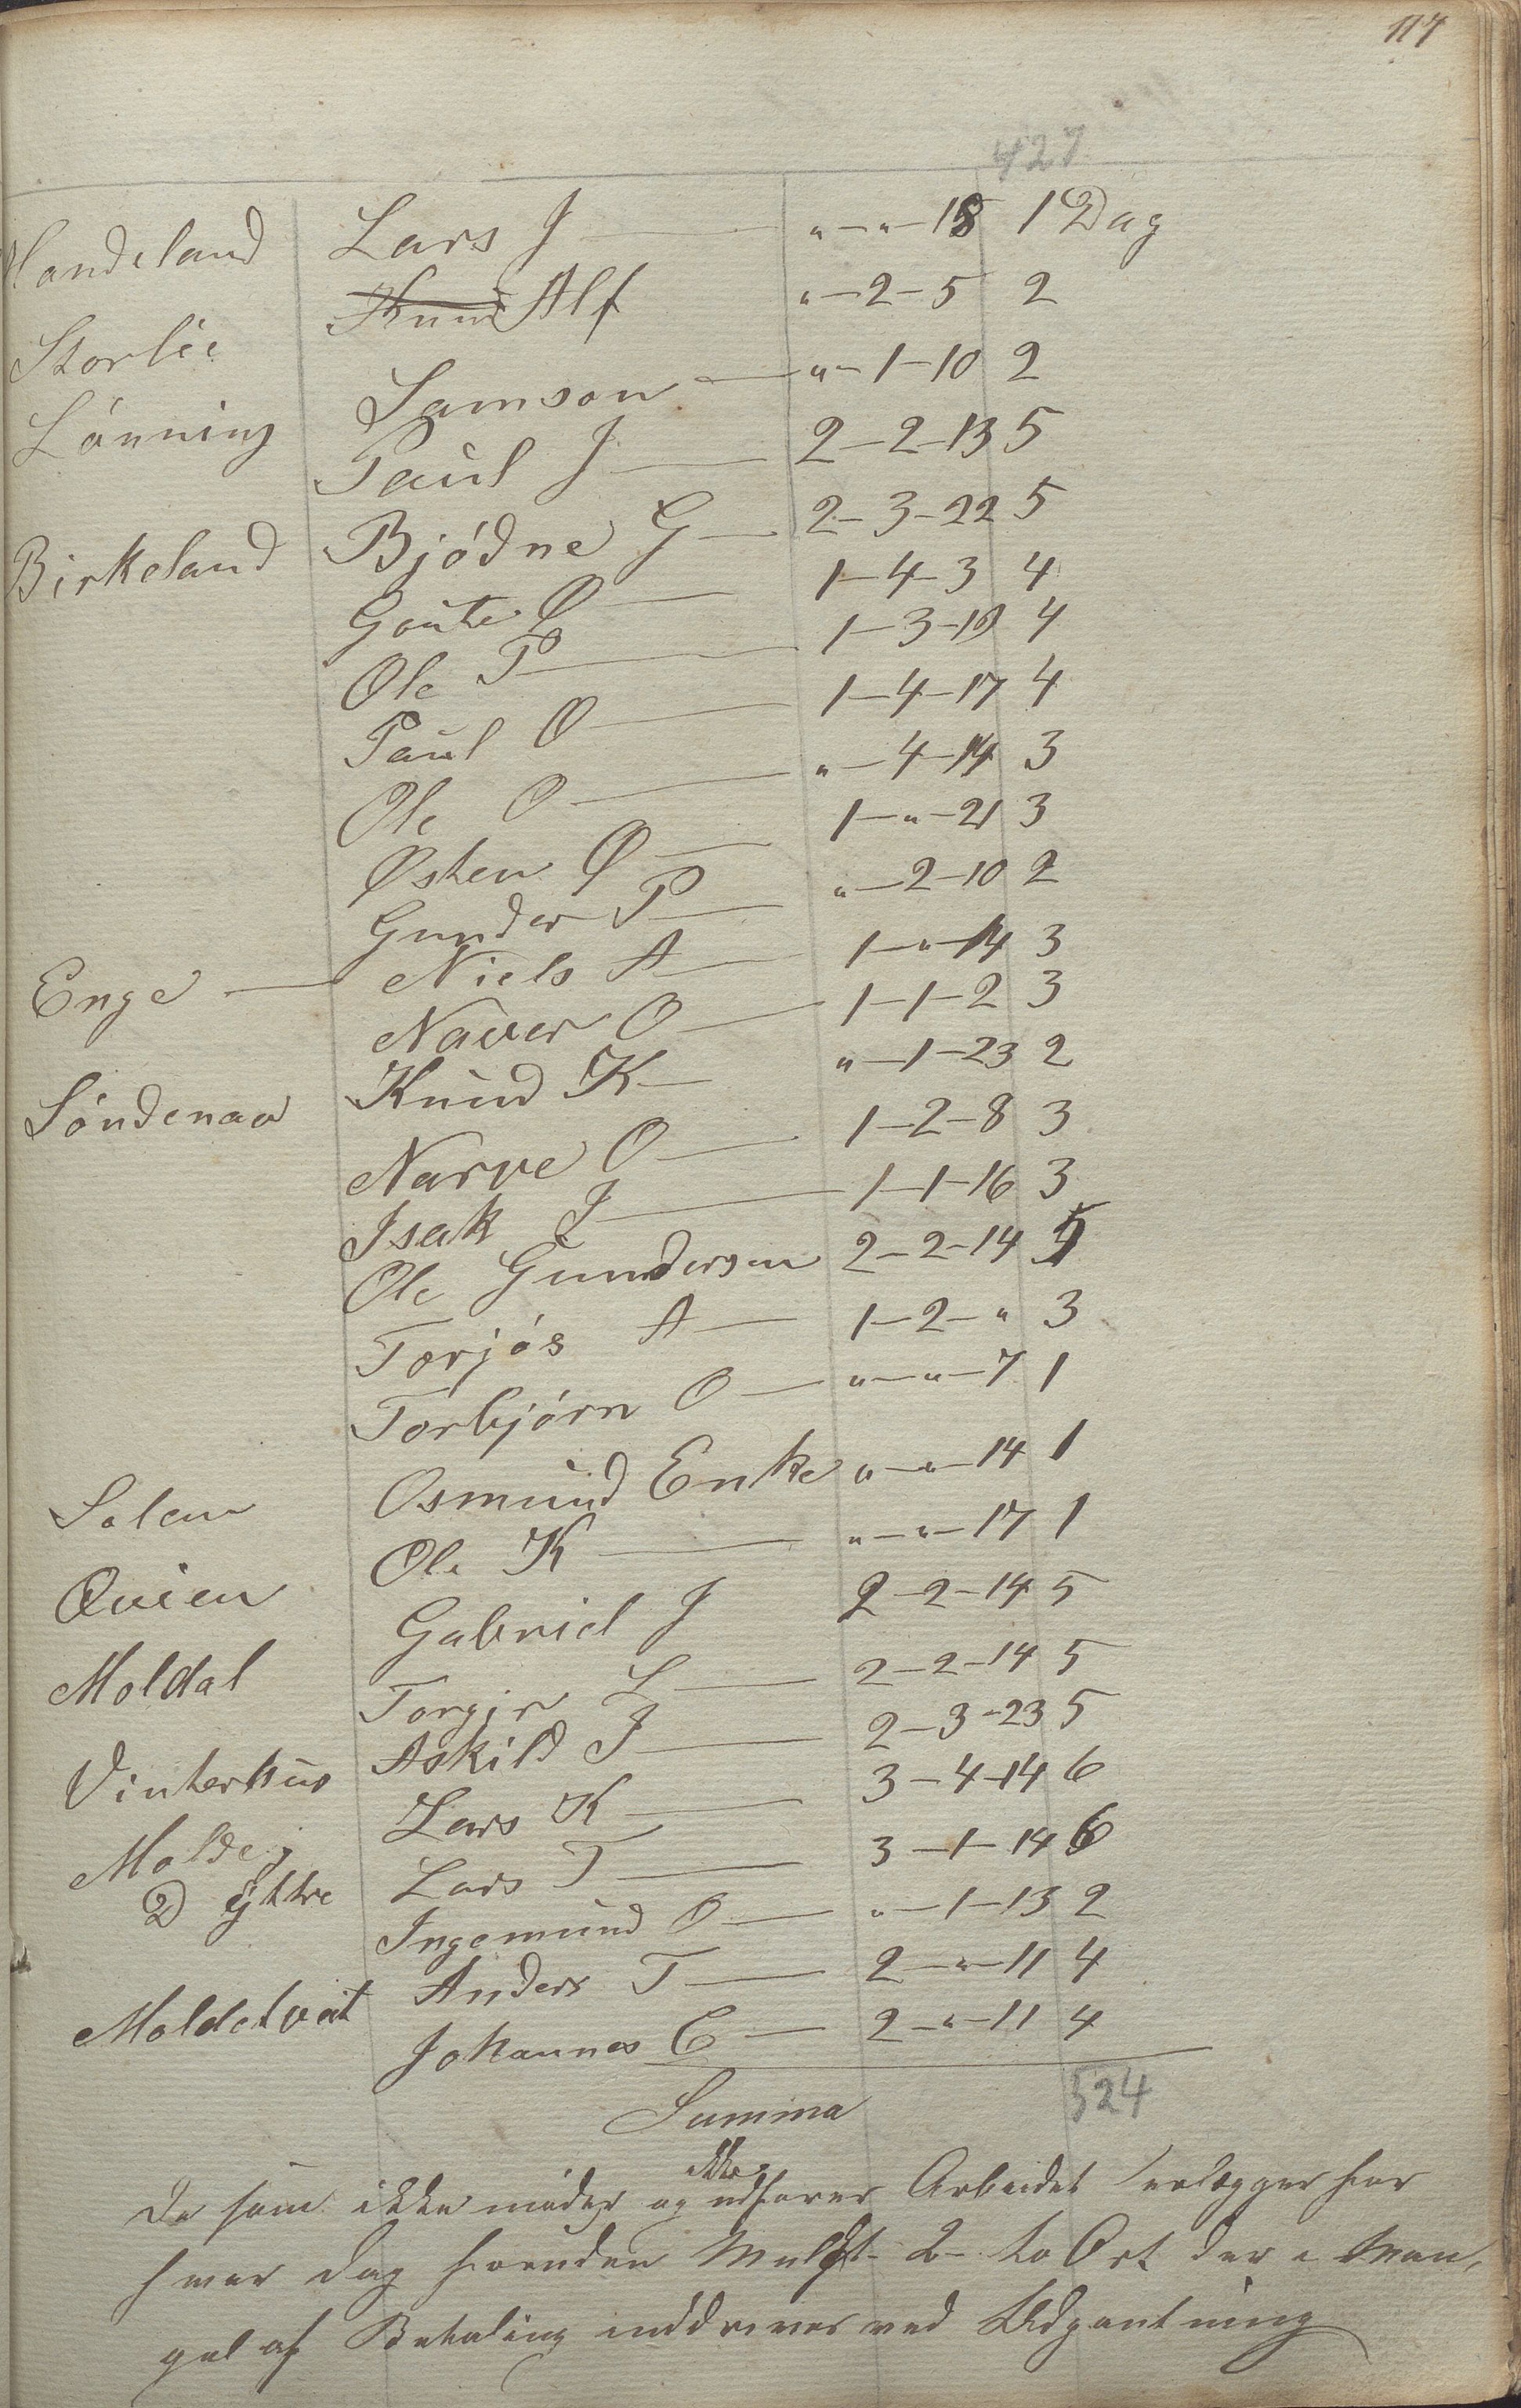 117
427
Handeland Lars J — " — " — 18 1 Dag
Knud Alf " — 2 — 5 2
Storlie Samson — " — 1 — 10 2
Lönning Paul J — 2 — 2 — 13 5
Birkeland Bjødne G — 2 — 3 — 22 5
Goute Ø — 1 — 4 — 3 4
Ole P — 1 — 3 — 19 4
Paul O — 1 — 4 — 17 4
Ole O — " — 4 — 14 3
Østen Ø — 1 — " — 21 3
Gunder P — " — 2 — 10 2
Enge — Niels A — 1 — " — 14 3
Naver O — 1 — 1 — 2 3
Söndenaa Knud K — " — 1 — 23 2
Narve O — 1 — 2 — 8 3
Isak J — 1 — 1 — 16 3
Ole Gundersen 2 — 2 — 14 5
Torjös A — 1 — 2 — " 3
Torbjörn O — " — " — 7 1
Solem Osmund Enke " — " — 14 1
Qvien Ole K — " — " — 17 1
Moldal Gabriel J 2 — 2 — 14 5
Torgir L — 2 — 2 — 14 5
Vinterhus Askild J — 2 — 3 — 23 5
Molde, Lars K — 3 — 4 — 14 6
D ÿttre Lars T — 3 — 1 — 14 6
Ingemund O — " — 1 — 13 2
Moldetvæt Anders T — 2 — " — 11 4
Johannes E — 2 — " — 11 4
Summa 524
ikke
De som ikke møder og udfører Arbeidet erlægger for
hver Dag foruden Mulgt 2 – to Ort der i Man,
gel af Betaling inddrives ved Udpantning